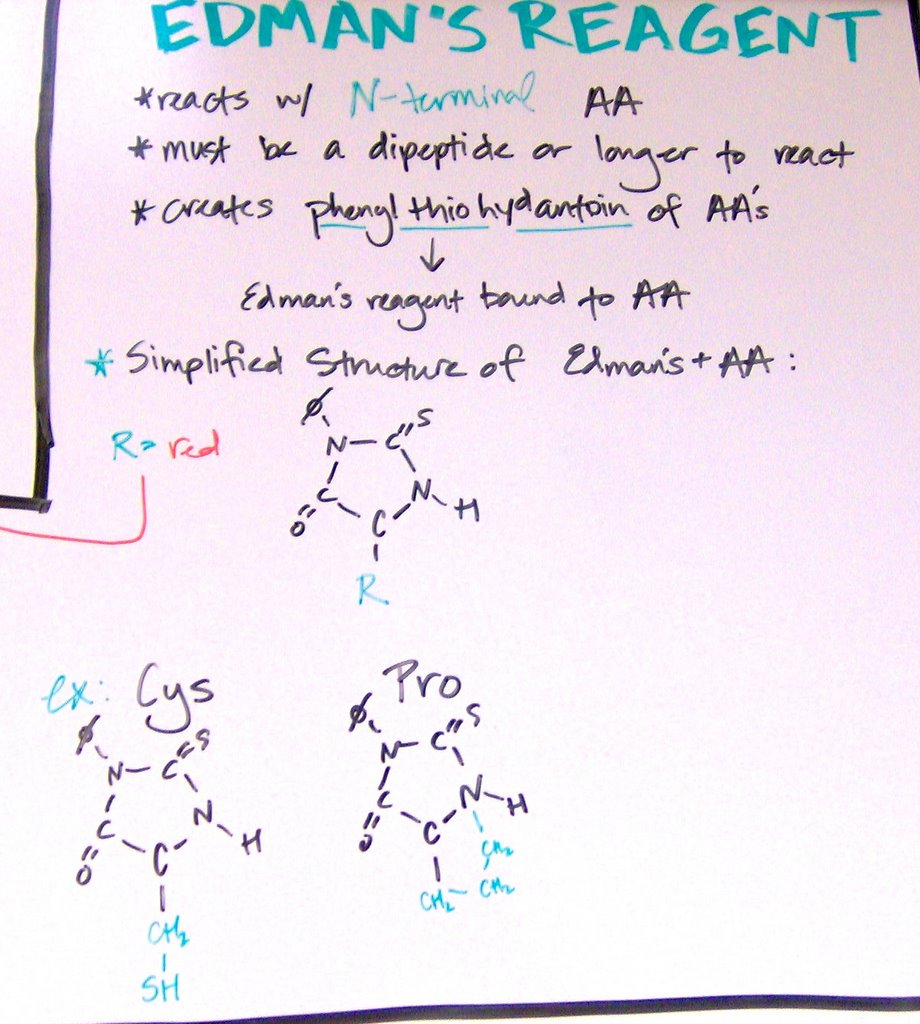 EDMAN'S REAGENT
*reacts w/ N-terminal AA
*must be a dipeptide or longer to react
*creates phenyl thio hydantoin of AA's
↓
Edman's reagent bound to AA
*Simplified Structure of Edman's + AA:
R = red
ø S
N-C
N-H
C
O C
R
ex: Cys Pro
ø S ø S
N-C N-C
N N-H
C H C
O C O C CH₂
CH₂-CH₂
CH₂
SH